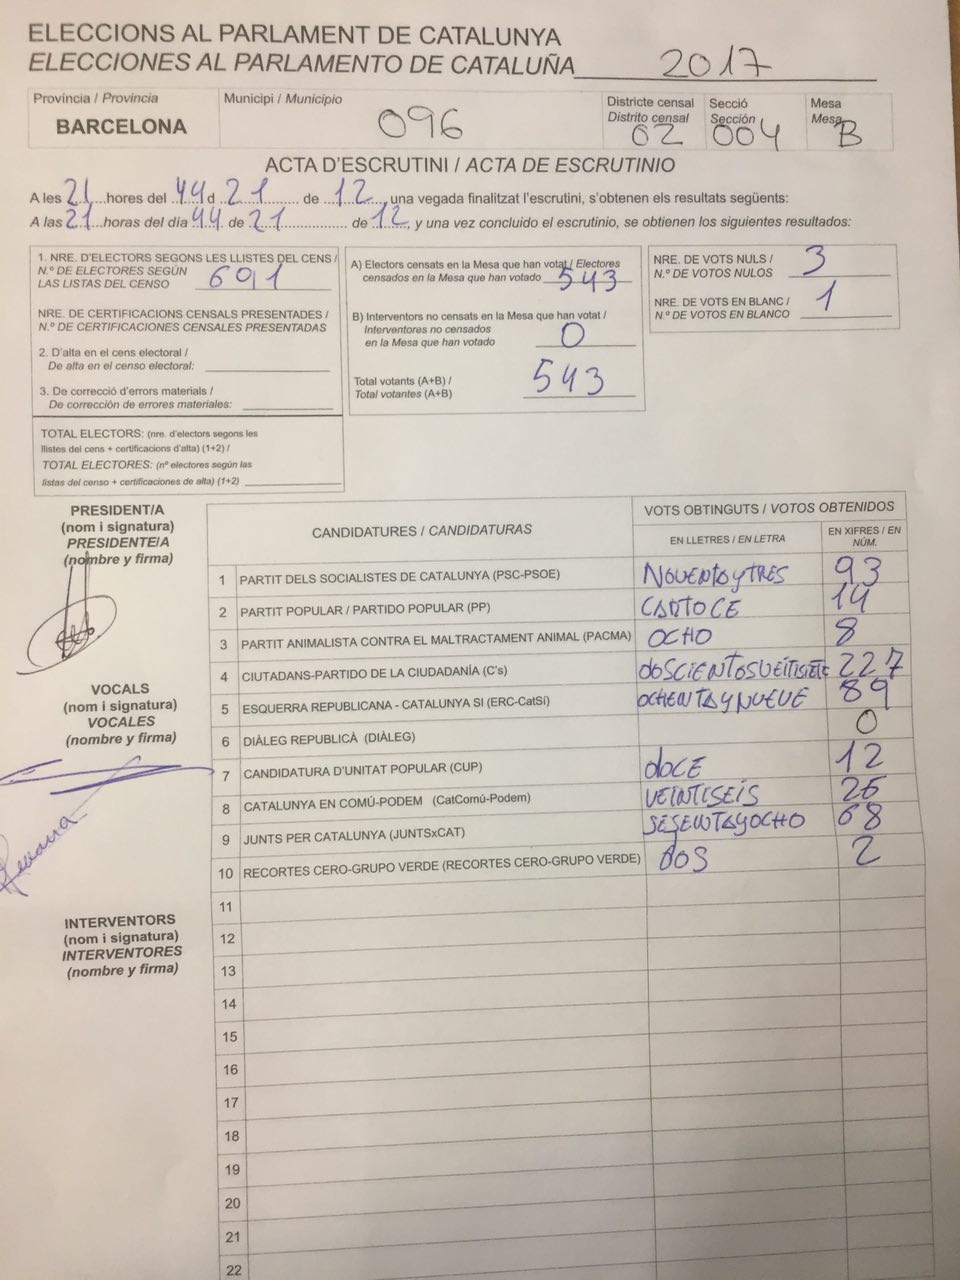 ELECCIONS AL PARLAMENT DE CATALUNYA
ELECCIONES AL PARLAMENTO DE CATALUÑA 2017
Província / Provincia
BARCELONA
Municipi / Municipio
096
Districte censal
Distrito censal
02
Secció
Sección
004
Mesa
Mesa
B
ACTA D'ESCRUTINI / ACTA DE ESCRUTINIO
A les 21 hores del 44 d 21 de 12, una vegada finalitzat l'escrutini, s'obtenen els resultats següents:
A las 21 horas del día 44 de 21 de 12, y una vez concluido el escrutinio, se obtienen los siguientes resultados:
1. NRE. D'ELECTORS SEGONS LES LLISTES DEL CENS /
N.º DE ELECTORES SEGÚN
LAS LISTAS DEL CENSO 691
NRE. DE CERTIFICACIONS CENSALS PRESENTADES /
N.º DE CERTIFICACIONES CENSALES PRESENTADAS
2. D'alta en el cens electoral /
De alta en el censo electoral:
3. De correcció d'errors materials /
De corrección de errores materiales:
TOTAL ELECTORS: (nre. d'electors segons les
llistes del cens + certificacions d'alta) (1+2) /
TOTAL ELECTORES: (nº electores según las
listas del censo + certificaciones de alta) (1+2)
A) Electors censats en la Mesa que han votat / Electores
censados en la Mesa que han votado 543
B) Interventors no censats en la Mesa que han votat /
Interventores no censados
en la Mesa que han votado 0
Total votants (A+B) /
Total votantes (A+B) 543
NRE. DE VOTS NULS /
N.º DE VOTOS NULOS 3
NRE. DE VOTS EN BLANC /
N.º DE VOTOS EN BLANCO 1
PRESIDENT/A
(nom i signatura)
PRESIDENTE/A
(nombre y firma)
VOCALS
(nom i signatura)
VOCALES
(nombre y firma)
INTERVENTORS
(nom i signatura)
INTERVENTORES
(nombre y firma)
CANDIDATURES / CANDIDATURAS
VOTS OBTINGUTS / VOTOS OBTENIDOS
EN LLETRES / EN LETRA
EN XIFRES / EN
NÚM.
1 PARTIT DELS SOCIALISTES DE CATALUNYA (PSC-PSOE) NOVENTAYTRES 93
2 PARTIT POPULAR / PARTIDO POPULAR (PP) CATOCE 14
3 PARTIT ANIMALISTA CONTRA EL MALTRACTAMENT ANIMAL (PACMA) OCHO 8
4 CIUTADANS-PARTIDO DE LA CIUDADANÍA (C's) doSCIENTOSVEITISIETE 227
5 ESQUERRA REPUBLICANA - CATALUNYA SI (ERC-CatSí) OCHENTAYNUEVE 89
6 DIÀLEG REPUBLICÀ (DIÀLEG) 0
7 CANDIDATURA D'UNITAT POPULAR (CUP) doCE 12
8 CATALUNYA EN COMÚ-PODEM (CatComú-Podem) VEINTISEIS 26
9 JUNTS PER CATALUNYA (JUNTSxCAT) SESENTAYOCHO 68
10 RECORTES CERO-GRUPO VERDE (RECORTES CERO-GRUPO VERDE) dOS 2
11
12
13
14
15
16
17
18
19
20
21
22